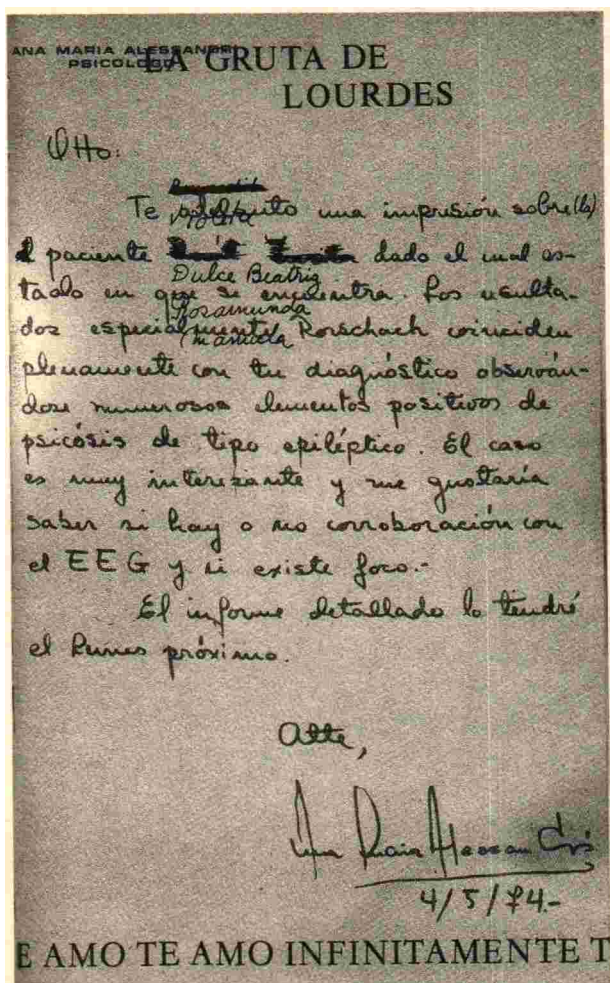 ANA MARIA ALESSANDRI
PSICOLOGO
LA GRUTA DE
LOURDES
Otto:
Te adjunto una impresión sobre (la)
el paciente dado el mal es-
Dulce Beatriz
tado en que se encuentra. Los resulta-
Rosamunda
dos especialmente Rorschach coinciden
Manuela
plenamente con tu diagnóstico observán-
dose numerosos elementos positivos de
psicósis de tipo epiléptico. El caso
es muy interesante y me gustaría
saber si hay o no corroboración con
el EEG y si existe foco.-
El informe detallado lo tendré
el Lunes próximo.
Atte,
4/5/74.-
E AMO TE AMO INFINITAMENTE T